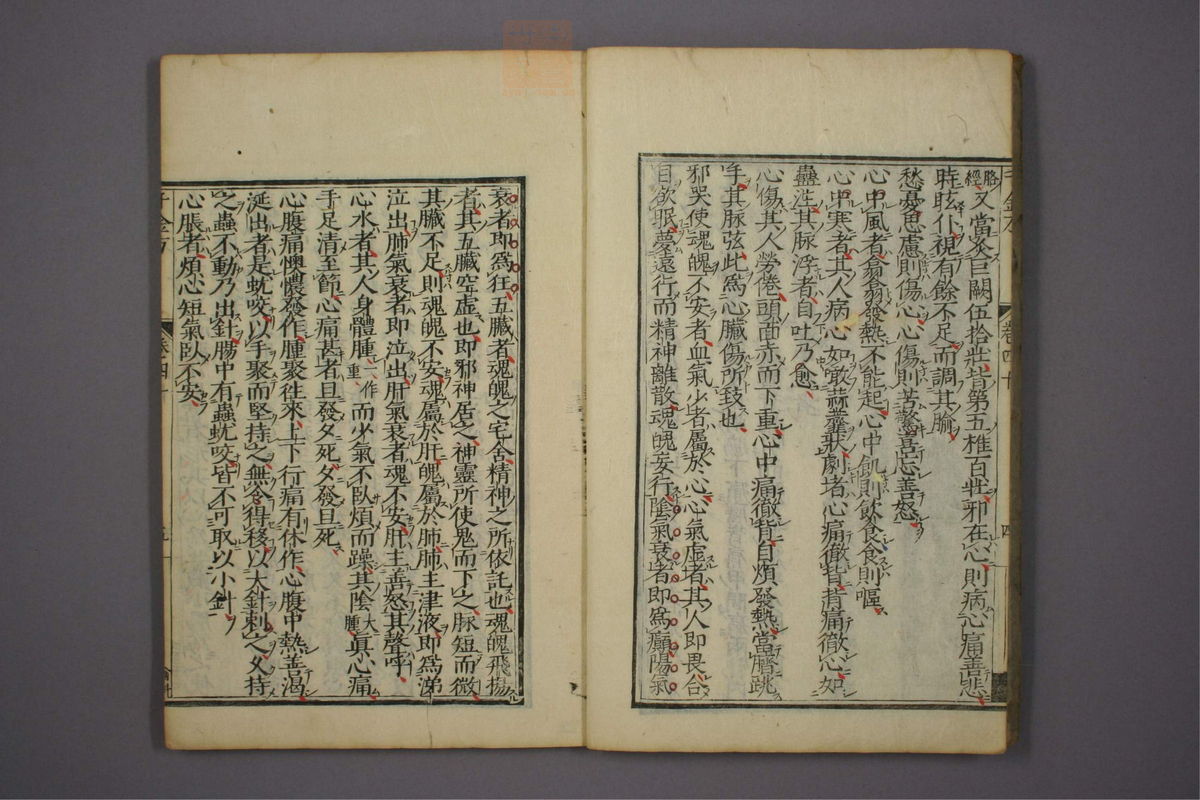 千金方
卷四十
四
絡經又當灸巨闕伍拾壯背第五椎百壯邪在心則病心痛善悲
時眩仆視有餘不足而調其腧
愁憂思慮則傷心心傷則苦驚喜忘善怒
心中風者翕翕發熱不能起心中飢則飲食食則嘔
心中寒者其人病心如噉蒜虀狀劇者心痛徹背背痛徹心如
蠱注其脉浮者自吐乃愈
心傷其人勞倦頭面赤而下重心中痛徹背自煩發熱當臍跳
手其脉弦此爲心臟傷所致也
邪哭使魂魄不安者血氣少者屬於心心氣虛者其人即畏合
目欲眠夢遠行而精神離散魂魄妄行陰氣衰者即爲癲陽氣
衰者即爲狂五臟者魂魄之宅舍精神之所依託也魂魄飛揚
者其五臟空虛也即邪神居之神靈所使鬼而下之脉短而微
其臟不足則魂魄不安魂屬於肝魄屬於肺肺主津液即爲涕
泣出肺氣衰者即泣出肝氣衰者魂不安肝主善怒其聲呼
心水者其人身體腫一作重而少氣不臥煩而躁其陰大腫眞心痛
手足清至節心痛甚者旦發夕死夕發旦死
心腹痛懊憹發作腫聚往來上下行痛有休作心腹中熱善渴
涎出者是蚘咬以手聚而堅持之無令得移以大針刺之久持
之蟲不動乃出針腸中有蟲蚘咬皆不可取以小針
心脹者煩心短氣臥不安
千金方
卷四十
五